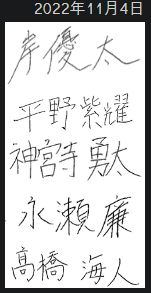 2022年11月4日
岸優太
平野紫耀
神宮寺勇太
永瀬廉
髙橋海人